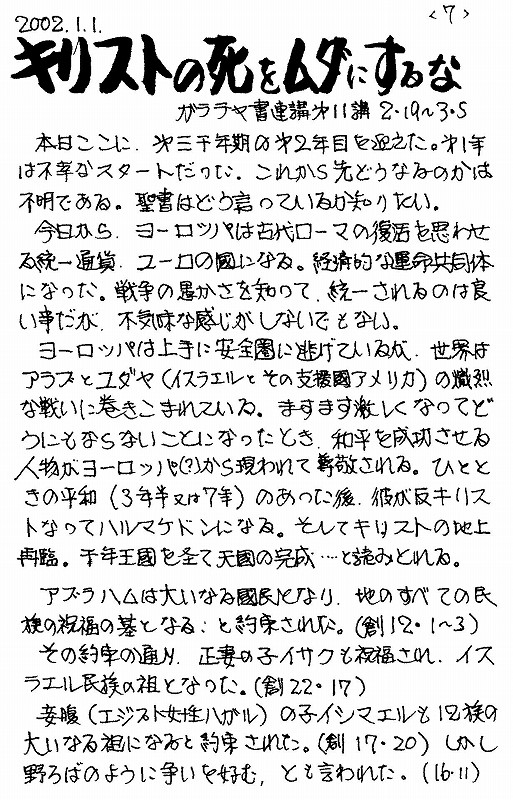 2002.1.1.
<7>
キリストの死をムダにするな
ガラテヤ書連講第11講 2・19〜3・5
本日ここに、第三千年期の第2年目を迎えた。第1年
は不幸なスタートだった。これから先どうなるのかは
不明である。聖書はどう言っているか知りたい。
今日から、ヨーロッパは古代ローマの復活を思わせ
る統一通貨、ユーロの國になる。経済的な運命共同体
になった。戦争の愚かさを知って、統一されるのは良
い事だが、不気味な感じがしないでもない。
ヨーロッパは上手に安全圏に逃げているが、世界は
アラブとユダヤ(イスラエルとその支援國アメリカ)の熾烈
な戦いに巻きこまれている。ますます激しくなってど
うにもならないことになったとき、和平を成功させる
人物がヨーロッパ(?)から現われて尊敬される。ひとと
きの平和(3年半又は7年)のあった後、彼が反キリス
トなってハルマゲドンになる。そしてキリストの地上
再臨。千年王國を全て天國の完成…と読みとれる。
アブラハムは大いなる國民となり、地のすべての民
族の祝福の基となる:と約束された。(創12・1〜3)
その約束の通り、正妻の子イサクも祝福され、イス
ラエル民族の祖となった。(創22・17)
妾腹(エジプト女性ハガル)の子イシマエルも12族の
大いなる祖になると約束された。(創17・20)しかし
野ろばのように争いを好む、とも言われた。(16・11)